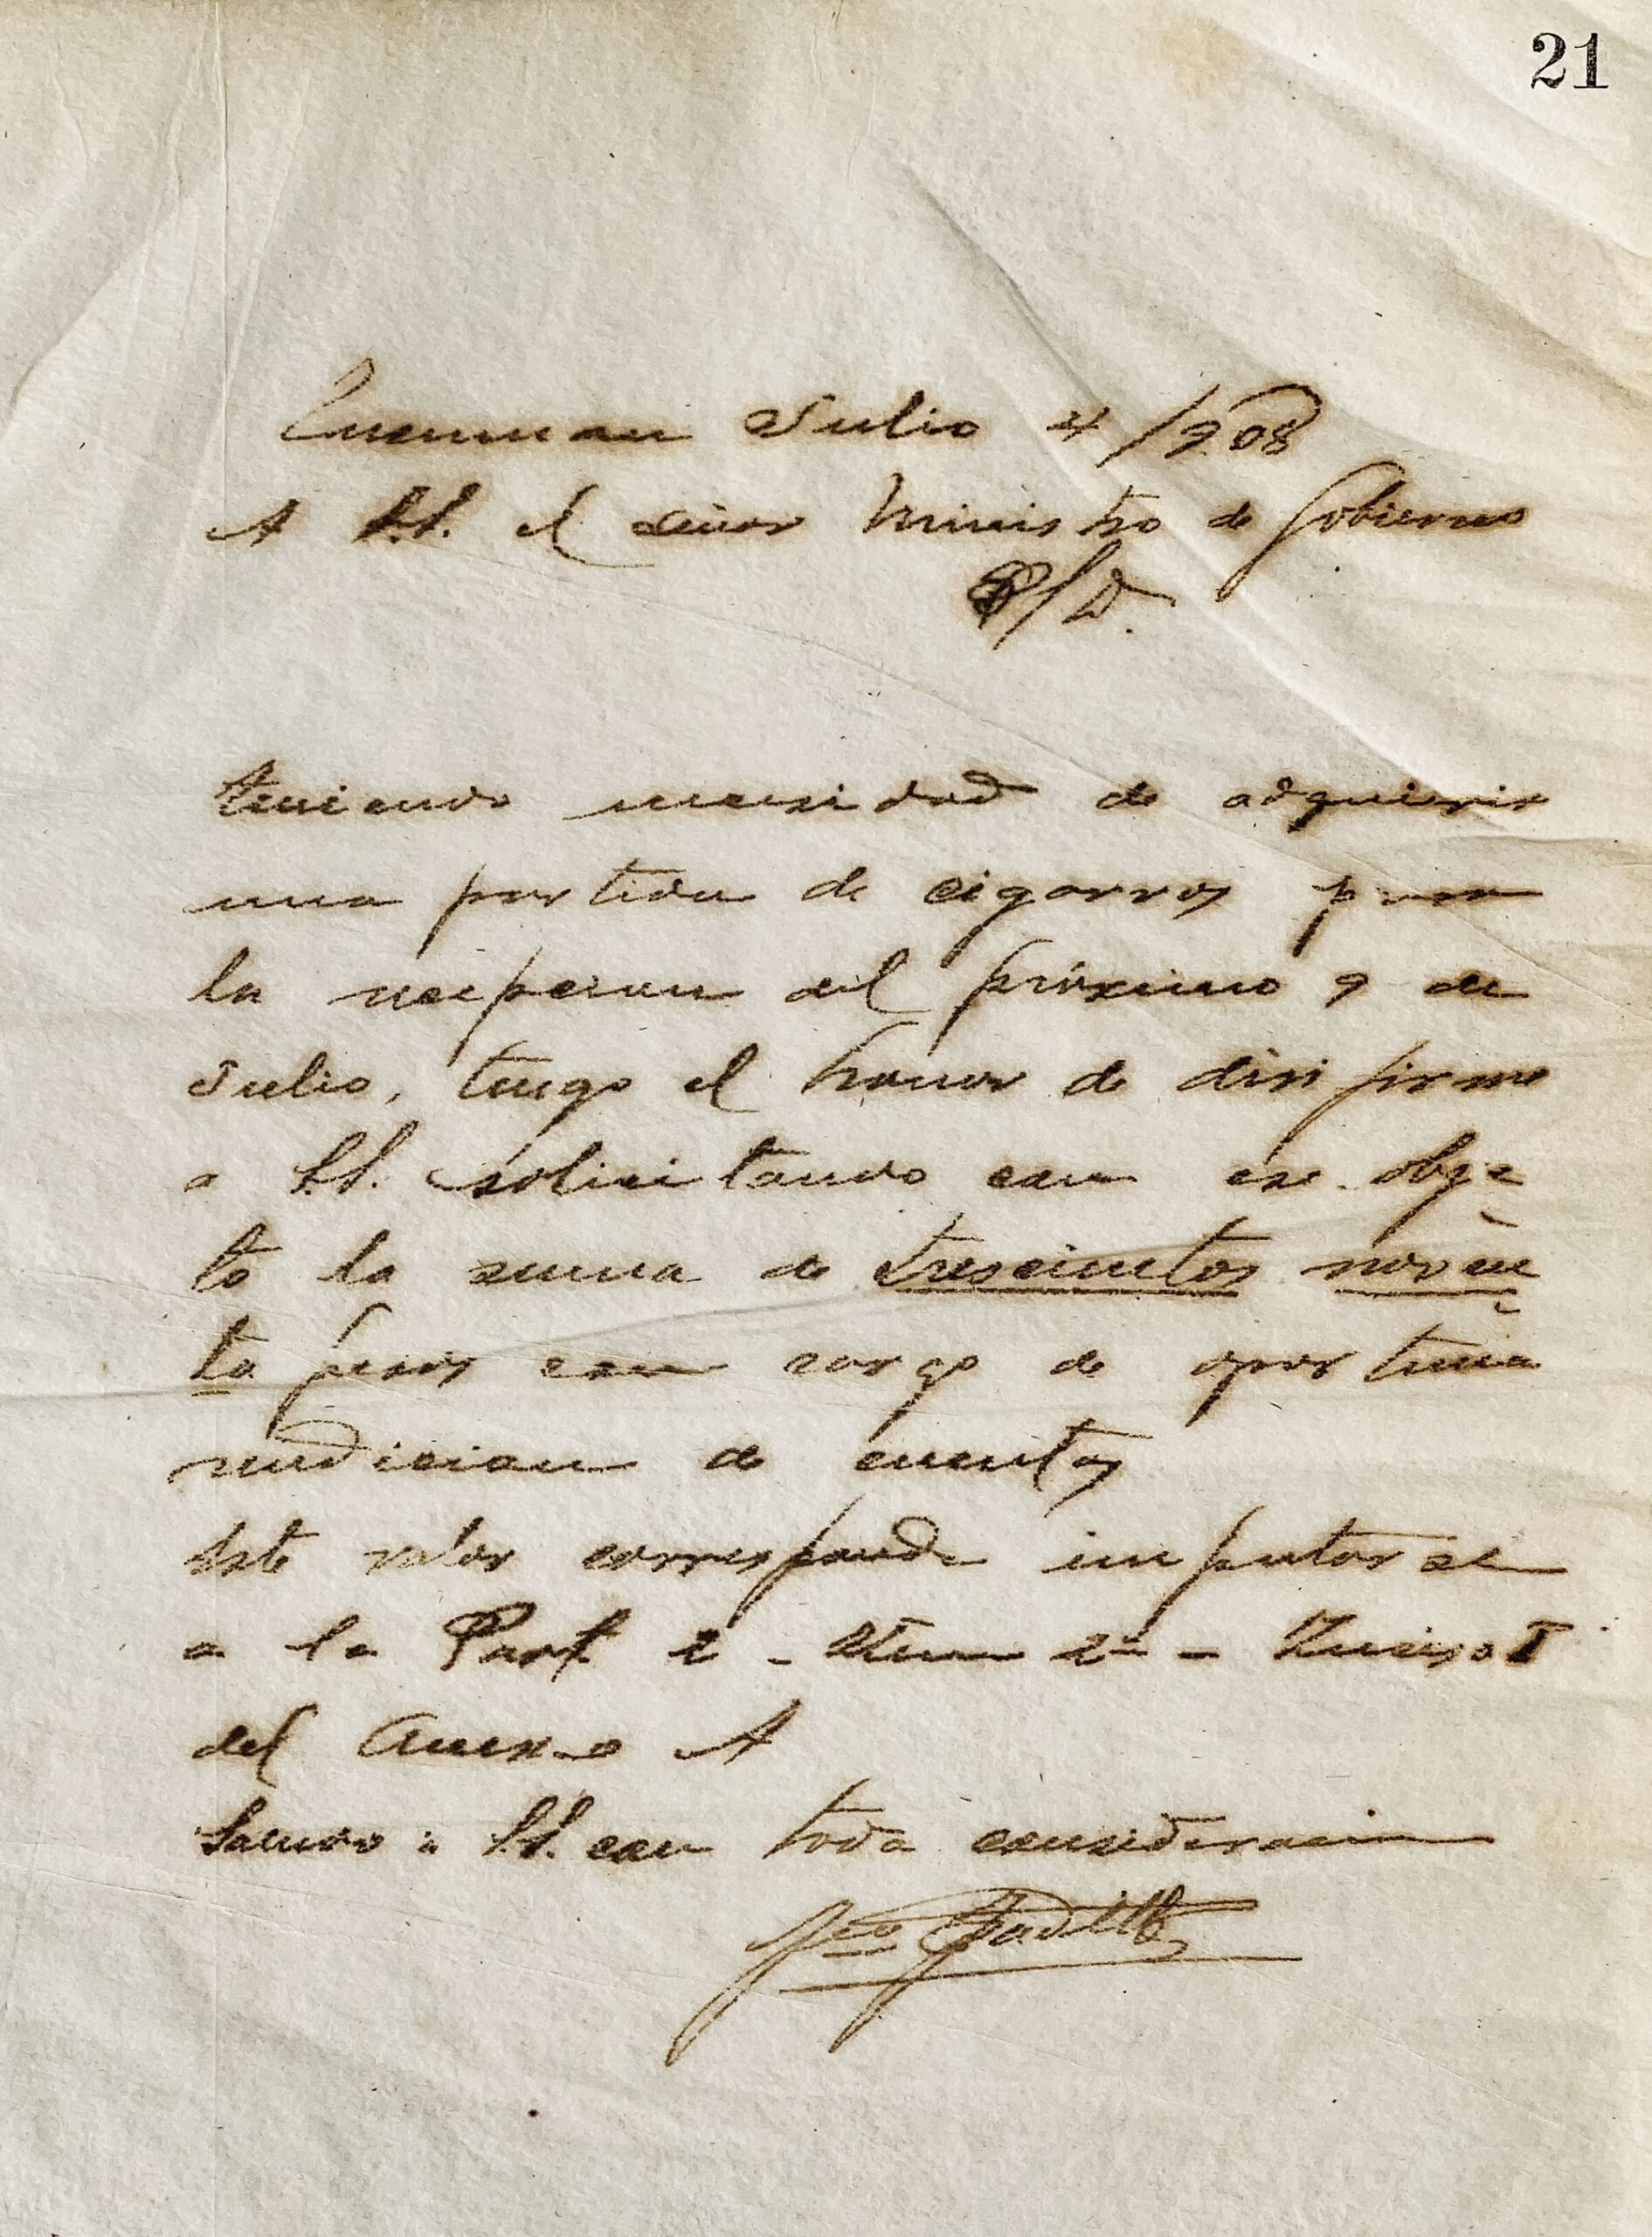 21
Tucuman Julio 4/908
A S.S. el señor Ministro de Gobierno
S/D.
Teniendo necesidad de adquirir
una partida de cigarros para
la recepcion del próximo 9 de
Julio, tengo el honor de dirijirme
a S.S. solicitando con ese obje
to la suma de trescientos noven
ta pesos con cargo de oportuna
rendicion de cuentas
Este valor corresponde imputarse
a la Part 2 - Item 2º - Inciso I
del Anexo A
Saludo a S.S. con toda consideracion
Jco Padilla